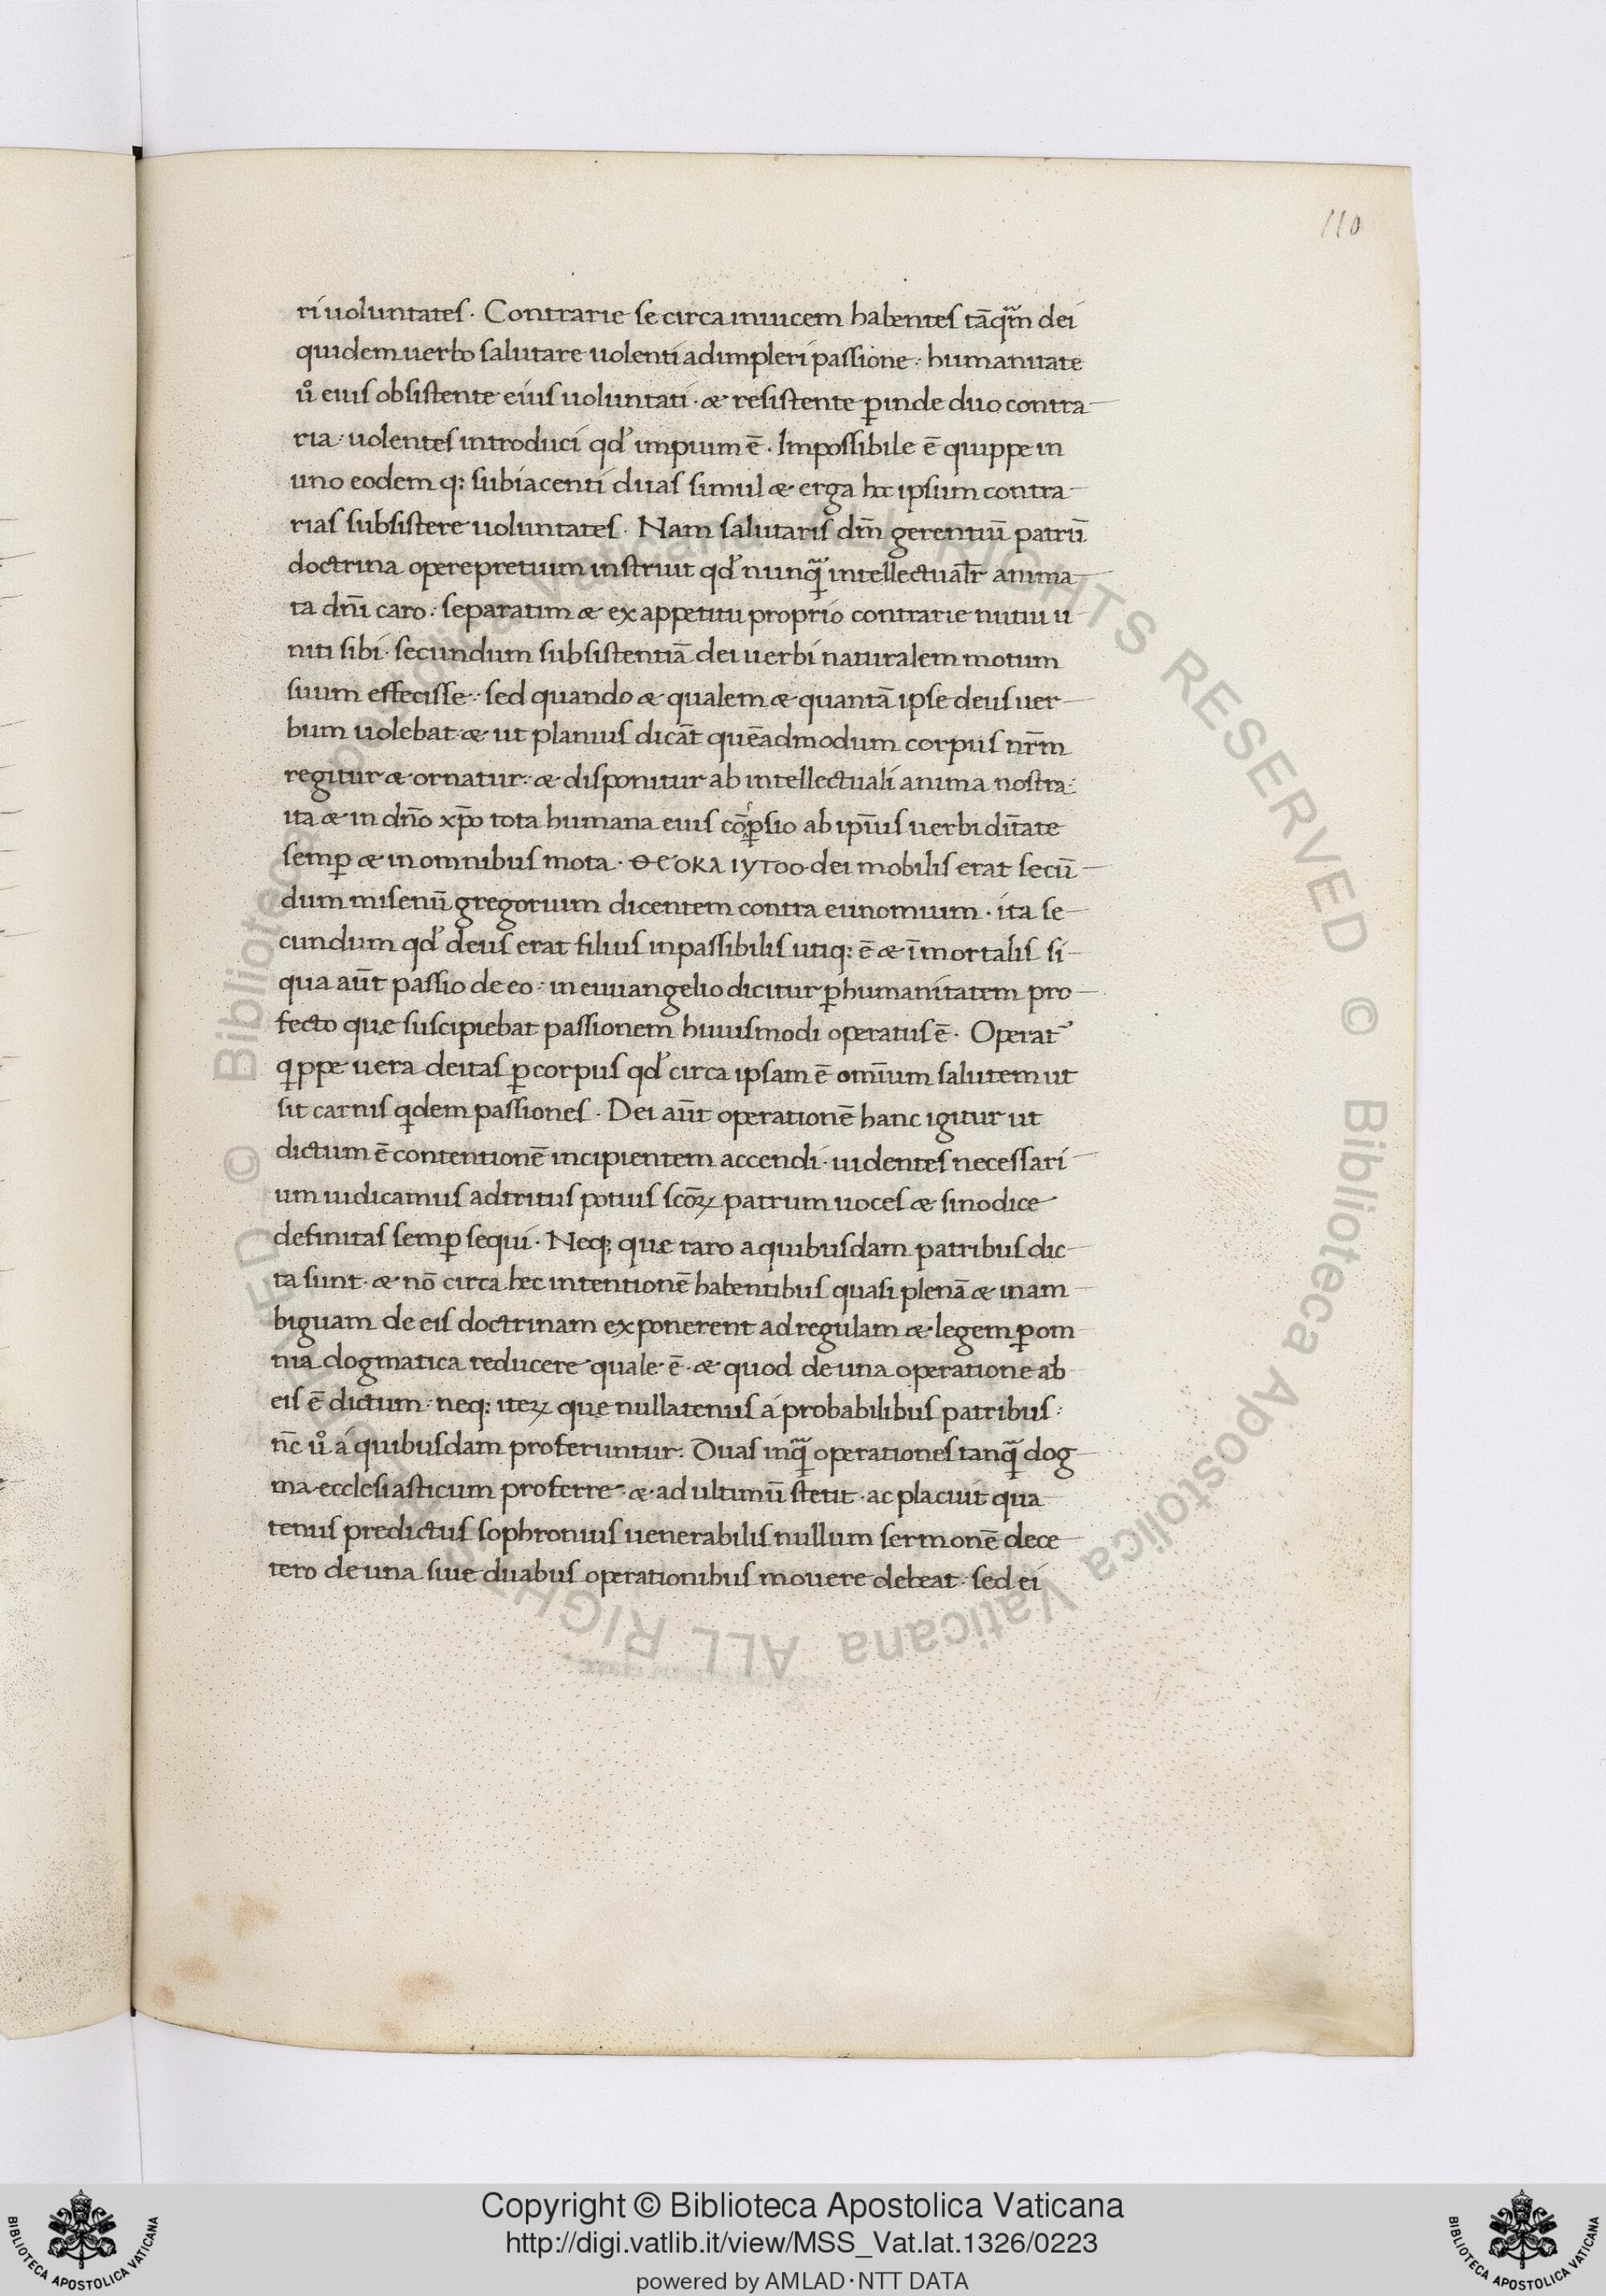 110
ri uoluntates. Contrarie se circa inuicem habentes tāq̄m dei
quidem uerbo salutare uolenti adimpleri passione: humanitate
ů eius obsistente eius uoluntati. æ resistente ꝑinde duo contra
ria uolentes introduci qd' impium ē. Impossibile ē quippe in
uno eodem q: subiacenti duas simul æ erga hoc ipsum contra
rias subsistere uoluntates. Nam salutaris dm̄ gerentiū patrū
doctrina opere pretium instruit qd' nunq̄ intellectualr̄ anima
ta dn̄i caro: separatim æ ex appetitu proprio contrarie nutui u
niti sibi. secundum subsistentiā dei uerbi naturalem motum
suum effecisse: sed quando æ qualem æ quantā ipse deus uer
bum uolebat. æ ut planius dicāt quēadmodum corpus nr̄m
regitur æ ornatur: æ disponitur ab intellectuali anima nostra:
ita æ in dn̄o xp̄o tota humana eius cō̄ꝑsio ab ip̄ius uerbi diт̄ate
semꝑ æ in omnibus mota. ΘЄΟΚΛ ΙΥΤΟΟ. dei mobilis erat secū
dum misenū gregorium dicentem contra eunomium. ita se
cundum qd' deus erat filius inpassibilis utiq: ē æ īmortalis si
qua aūt passio de eo: in euuangelio dicitur ꝑ humanitatem pro
fecto que suscipiebat passionem huiusmodi operatus ē. Operat᾽
qppe uera deitas ꝑ corpus qd' circa ipsam ē omīum salutem ut
sit carnis qdem passiones. Dei aūt operationē hanc igitur ut
dictum ē contentionē incipientem accendi. uidentes necessari
um iudicamus adtritus potuis scōꝝ patrum uoces æ sinodice
definitas semꝑ sequi. Neq: que raro a quibusdam patribus dic
ta sunt. æ nō circa hec intentionē habentibus quasi plenā æ inam
biguam de eis doctrinam exponerent ad regulam æ legem ꝑ om
nia dogmatica reducere quale ē. æ quod de una operatione ab
eis ē dictum: neq: iteꝝ que nullatenus á probabilibus patribus:
n̄c ů á quibusdam proferuntur. Duas inq̄ operationes tanq̄ dog
ma ecclesiasticum proferre. æ ad ultimū stetit. ac placuit qua
tenus predictus sophronius uenerabilis nullum sermonē dece
tero de una siue duabus operationibus mouere debeat. sed ei
© Biblioteca Apostolica Vaticana ALL RIGHTS RESERVED © Biblioteca Apostolica Vaticana ALL RIGHTS RESERVED
Copyright © Biblioteca Apostolica Vaticana
http://digi.vatlib.it/view/MSS_Vat.lat.1326/0223
powered by AMLAD·NTT DATA
BIBLIOTECA APOSTOLICA VATICANA
BIBLIOTECA APOSTOLICA VATICANA